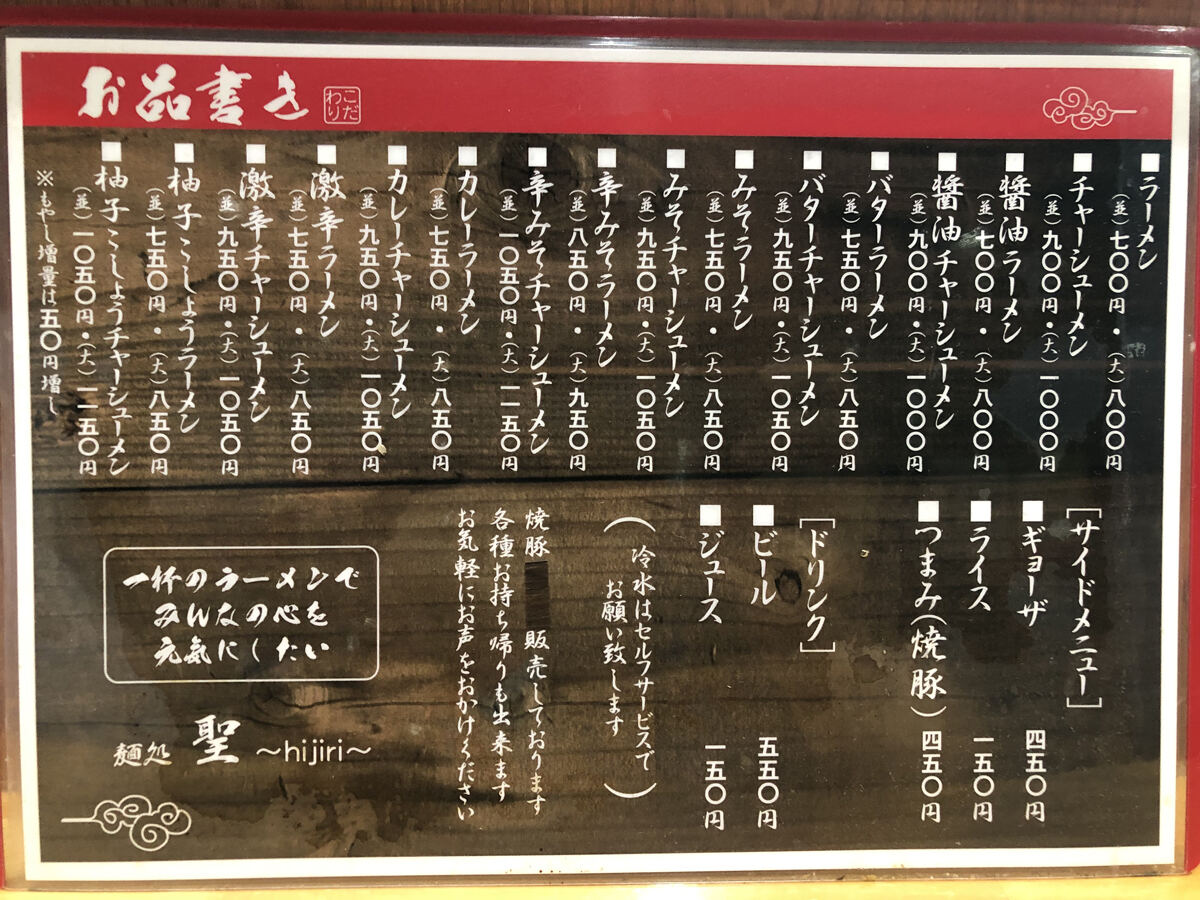 お品書き
こだわり
■ラーメン
(並)七〇〇円・(大)八〇〇円
■チャーシューメン
(並)九〇〇円・(大)一〇〇〇円
■醤油ラーメン
(並)七〇〇円・(大)八〇〇円
■醤油チャーシューメン
(並)九〇〇円・(大)一〇〇〇円
■バターラーメン
(並)七五〇円・(大)八五〇円
■バターチャーシューメン
(並)九五〇円・(大)一〇五〇円
■みそラーメン
(並)七五〇円・(大)八五〇円
■みそチャーシューメン
(並)九五〇円・(大)一〇五〇円
■辛みそラーメン
(並)八五〇円・(大)九五〇円
■辛みそチャーシューメン
(並)一〇五〇円・(大)一一五〇円
■カレーラーメン
(並)七五〇円・(大)八五〇円
■カレーチャーシューメン
(並)九五〇円・(大)一〇五〇円
■激辛ラーメン
(並)七五〇円・(大)八五〇円
■激辛チャーシューメン
(並)九五〇円・(大)一〇五〇円
■柚子こしょうラーメン
(並)七五〇円・(大)八五〇円
■柚子こしょうチャーシューメン
(並)一〇五〇円・(大)一一五〇円
※もやし増量は五〇円増し
[サイドメニュー]
■ギョーザ 四五〇円
■ライス 一五〇円
■つまみ(焼豚) 四五〇円
[ドリンク]
■ビール 五五〇円
■ジュース 一五〇円
(冷水はセルフサービスで
お願い致します)
焼豚 販売しております
各種お持ち帰りも出来ます
お気軽にお声をおかけください
一杯のラーメンで
みんなの心を
元気にしたい
麺処 聖 ～hijiri～